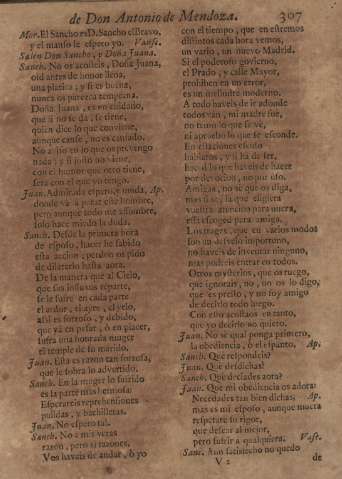 de Don Antonio de Mendoza. 307
Mor. El Sancho es D. Sancho el Bravo,
y el manso le espero yo. Vanse.
Salen Don Sancho, y Doña Juana.
Sanch. No os acuseis, Doña Juana,
oid antes de honor llena,
una platica, y si es buena,
nunca os parezca temprana.
Doña Juana, es en cuidado,
que si no se dà, se tiene,
quien dice lo que conviene,
aunque canse, no es cansado.
No a
nada; y si justo no viene,
con el humor que otro tiene,
serà con el que yo tengo.
Juan. Admirada espero, y muda, Ap.
donde và à parar este hombre,
pero aunque todo me assombre,
solo hace miedo la duda.
Sanch. Desde la primera hora
de esposo, hacer he sabido
esta accion, perdon os pido
de dilatarlo hasta aora.
De la manera que al Cielo,
que sus influxos reparte,
se le sufre en cada parte
el ardor, el ayre, el yelo,
assi es forzoso, y debido,
que yà en pesar, ò en placer,
sufra una honrada muger
el temple de su marido.
Juan. Esta es razon tan forzosa,
que le sobra lo advertido.
Sanch. En la muger lo sufrido
es la parte mas hermosa.
Esperareis reprehensiones
pulidas, y bachilleras.
Juan. No espero tal.
Sanch. No à mis veras
razon, pero si razones.
Vos haveis de andar, ò yo
con el tiempo, que en estremos
distintos cada hora vemos,
un vario, un nuevo Madrid.
Si el poderoso govierno,
el Prado, y calle Mayor,
prohiben en un error,
es un infierno moderno.
A todo haveis de ir adonde
todos van, mi madre fue,
no temo lo que se vè,
ni apruebo lo que se esconde.
En estaciones
hablaros, y si ha de ser,
haced lo que haveis de hacer
por devocion, no por uso.
Amigas, no sè que os diga,
mas si sè, la que eligiera
vuestra atencion para nuera,
essa escoged para amiga.
Los trages, que en varios modos
son un desvelo importuno,
no haveis de inventar ninguno,
mas podreis entrar en todos.
Otros mysterios, que os ruego,
que ignorais, no, no os lo digo,
que es preciso, y no soy amigo
de decirlo todo luego.
Con esto acostaos en tanto,
que yo decirlo no quiero.
Juan. No sè qual ponga primero,
la obediencia, ò el espanto. Ap.
Sanch. Què respondeis?
Juan. Què desdichas!
Sanch. Què deciades aora?
Juan. Que mi obediencia os adora:
Necedades tan bien dichas; Ap.
mas es mi esposo, aunque muera
respetarè su rigor,
que desear al mejor,
pero sufrir à qualquiera. Vase.
Sanc. Aun satisfecho no quedo
V 2 de